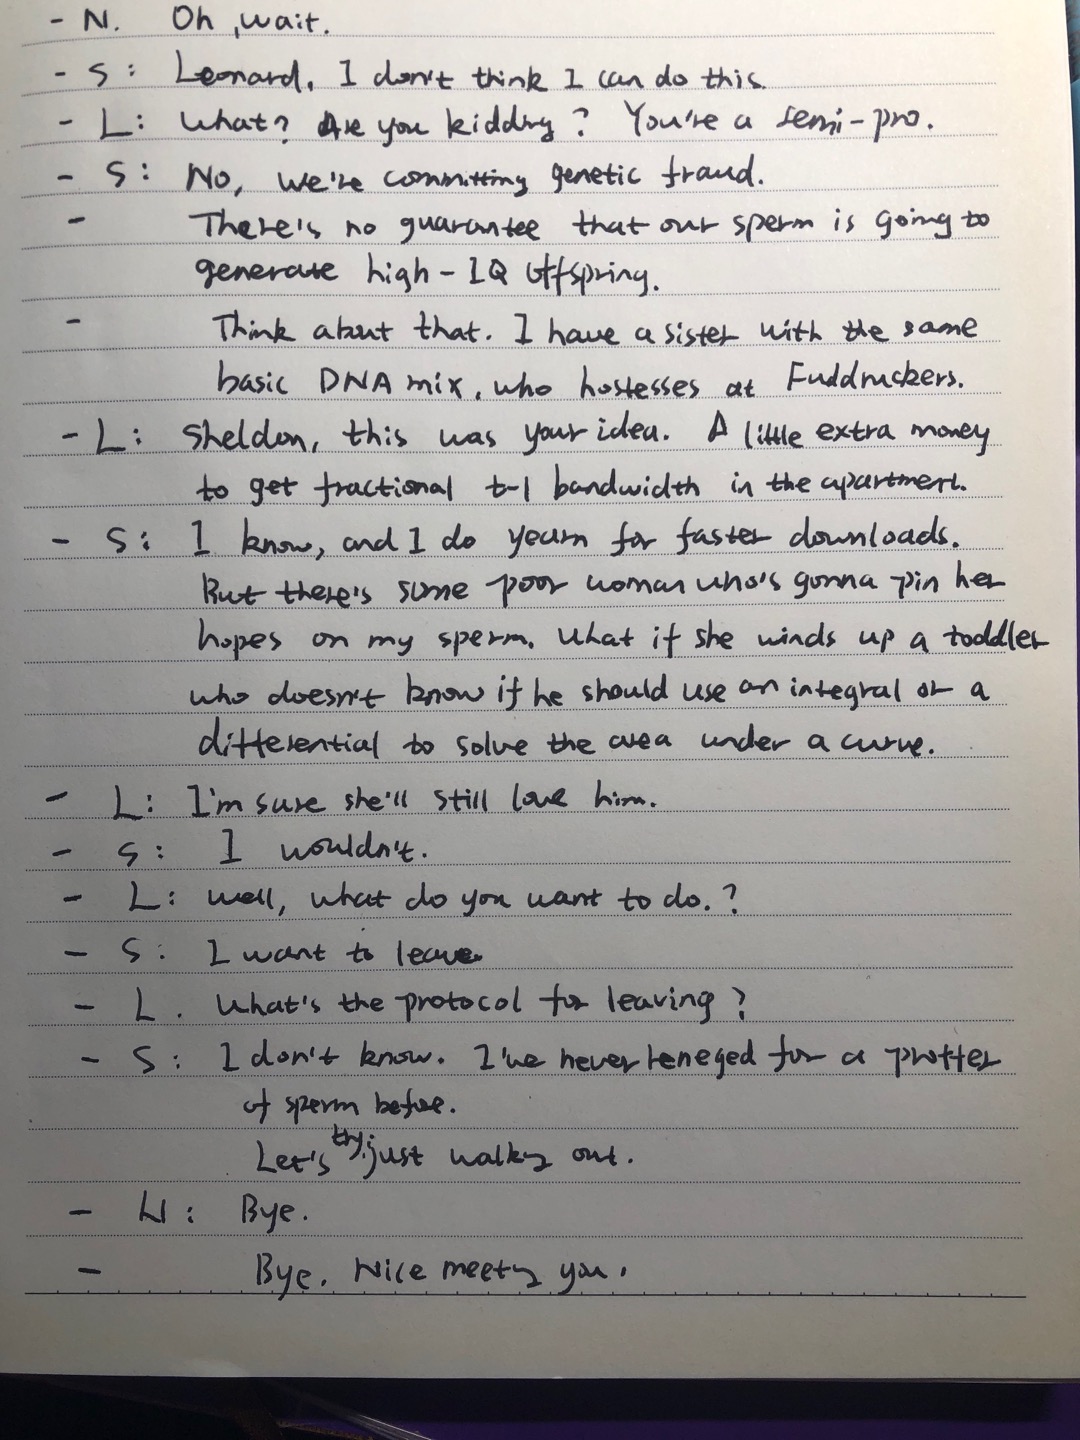 - N. Oh, wait.
- S: Leonard, I don't think I can do this.
- L: What? Are you kidding? You're a semi-pro.
- S: No, we're committing genetic fraud.
- There's no guarantee that our sperm is going to
generate high-IQ offspring.
- Think about that. I have a sister with the same
basic DNA mix, who hostesses at Fuddruckers.
- L: Sheldon, this was your idea. A little extra money
to get fractional t-1 bandwidth in the apartment.
- S: I know, and I do yearn for faster downloads.
But there's some poor woman who's gonna pin her
hopes on my sperm. What if she winds up a toddler
who doesn't know if he should use an integral or a
differential to solve the area under a curve.
- L: I'm sure she'll still love him.
- S: I wouldn't.
- L: Well, what do you want to do.?
- S: I want to leave.
- L. What's the protocol for leaving?
- S: I don't know. I've never reneged for a proffer
of sperm before.
Let's try just walking out.
- : Bye.
- Bye. Nice meeting you.